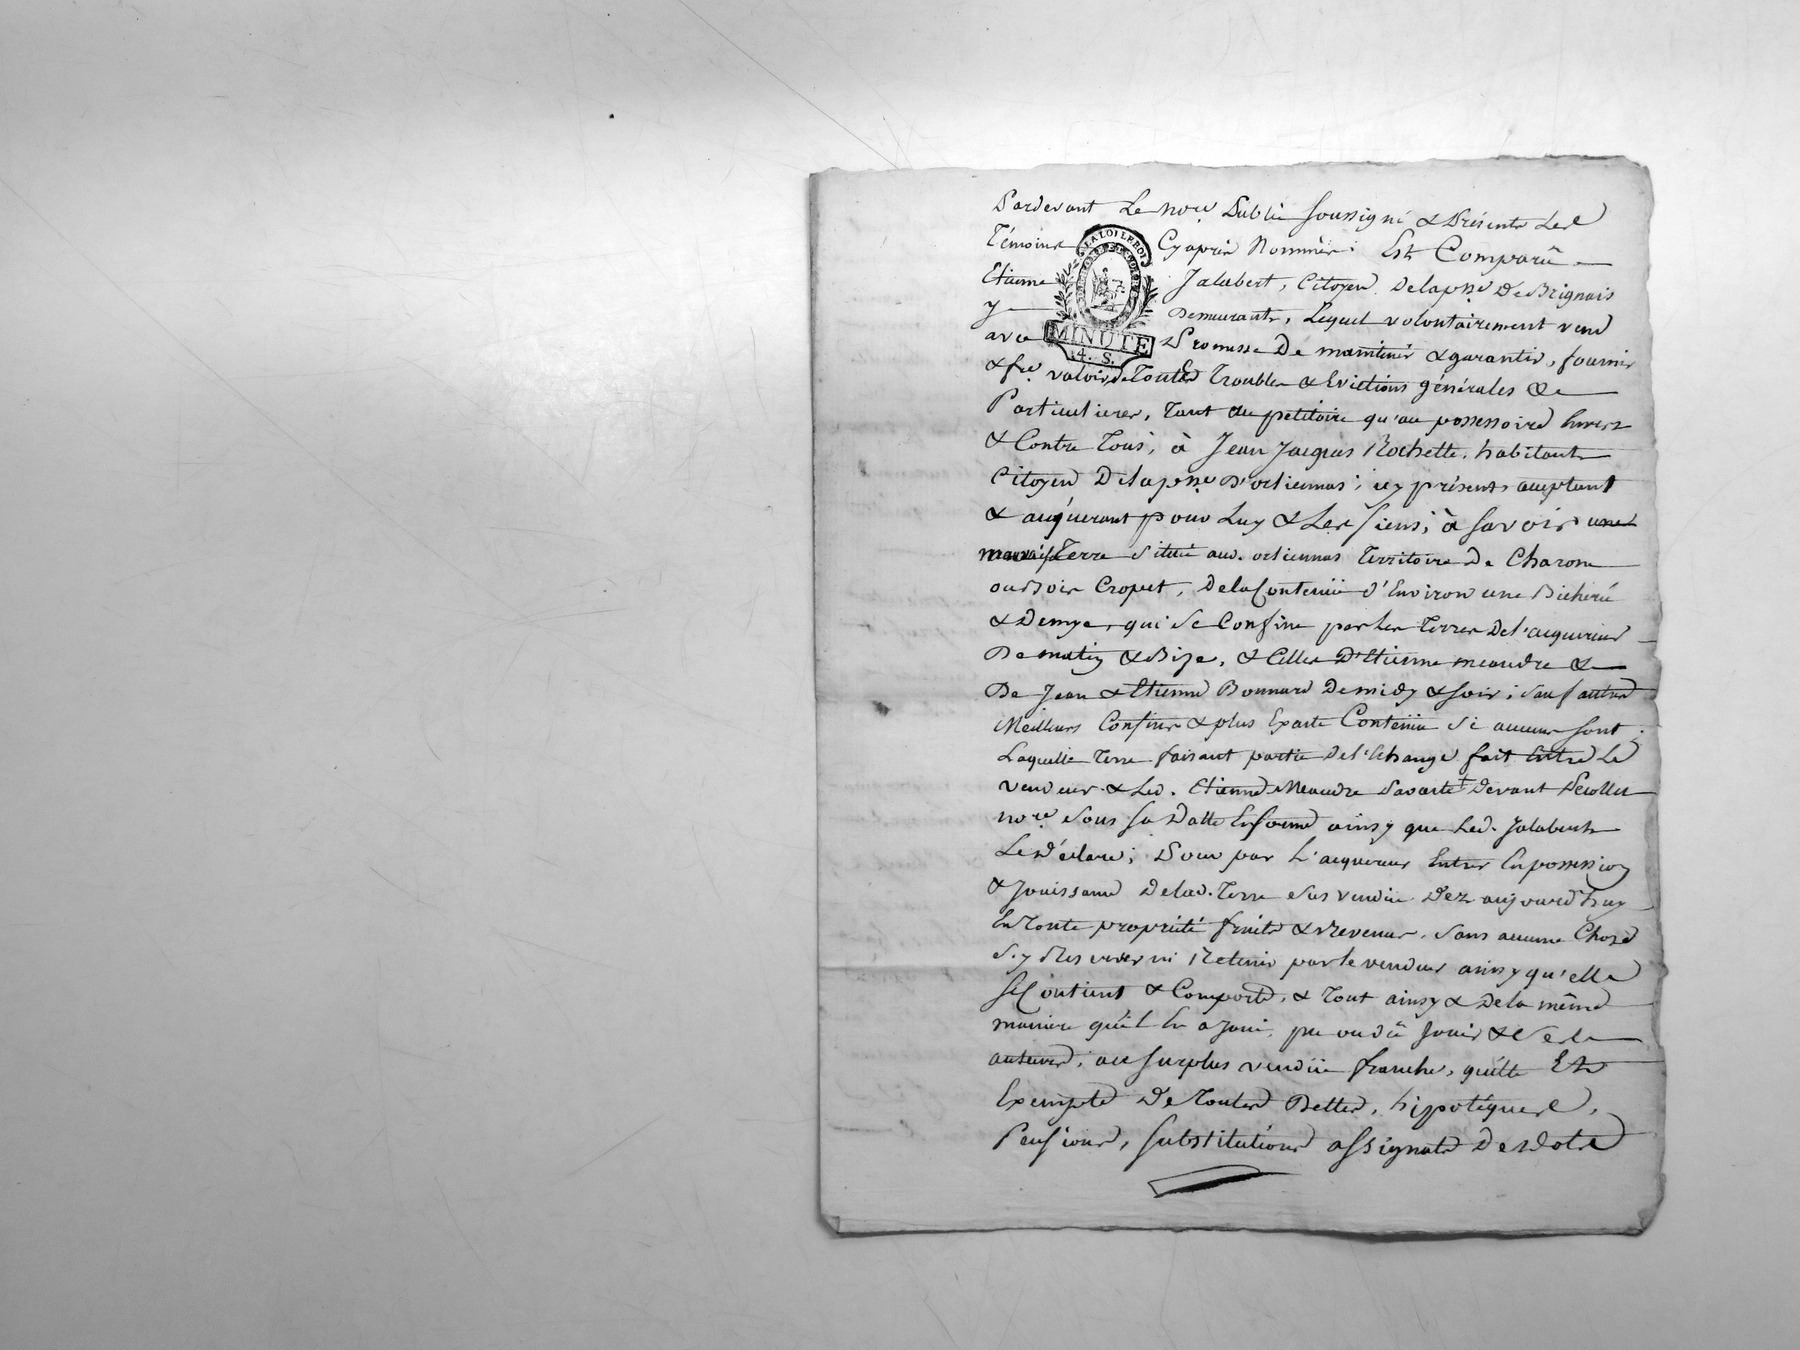 Pardevant Le Nore. Public soussigné & Présents Les
Témoins Cyaprès Nommés. Est Comparû
LA LOI LE ROI
Etienne Jalabert, Citoyen delapsse. De Brignais
y Demeurant, Lequel volontairement vend
MINUTE
avec Promesse De maintenir & garantir, fournir
4. S.
& fre. valoir de Toutes Troubles & Evictions générales &
Particulieres, Tant au petitoire qu'au possessoire Envers
& Contre Tous, à Jean Jacques Rochette, habitant
Citoyen Delapsse. D'orliennas, icy présent, acceptant
& acquerant pour Luy & Les siens, à savoir une
mauvaise Terre située aud. orliennas Territoire De Charom
ou Bois Cropet, De la Contenüe d'Environ une Bicherée
& Demye, qui se Confine par les Terres De l'acquereur
De matin & Bize, & Celles D'Etienne meaudre &
De Jean & Etienne Bonnard De midy & soir; sauf autres
Meilleurs Confins & plus Exacte Contenüe si aucuns sont;
Laquelle Terre faisant partie De l'Echange fait Entre Le
vendeur & Led. Etienne Meaudre Devant
nore. sous sa Datte En forme ainsy que Led. Jalabert
Le Déclare; Pour par L'acquereur Entrer En possession
& Jouissance Delad. Terre sus vendüe Dez aujourd'huy
En Toute propriété fruits & Revenus, sans aucune Chose
s'y Réserver ni Retenir par le vendeur ainsy qu'elle
se Contient & Comporte, & Tout ainsy & De la même
maniere qu'il En a Joui, pu ou dû Jouir & Ses
auteurs, au surplus vendüe franche, quitte Et
Exempte De Toutes Dettes, hippotéques,
Pensions, substitutions assignats De Dots